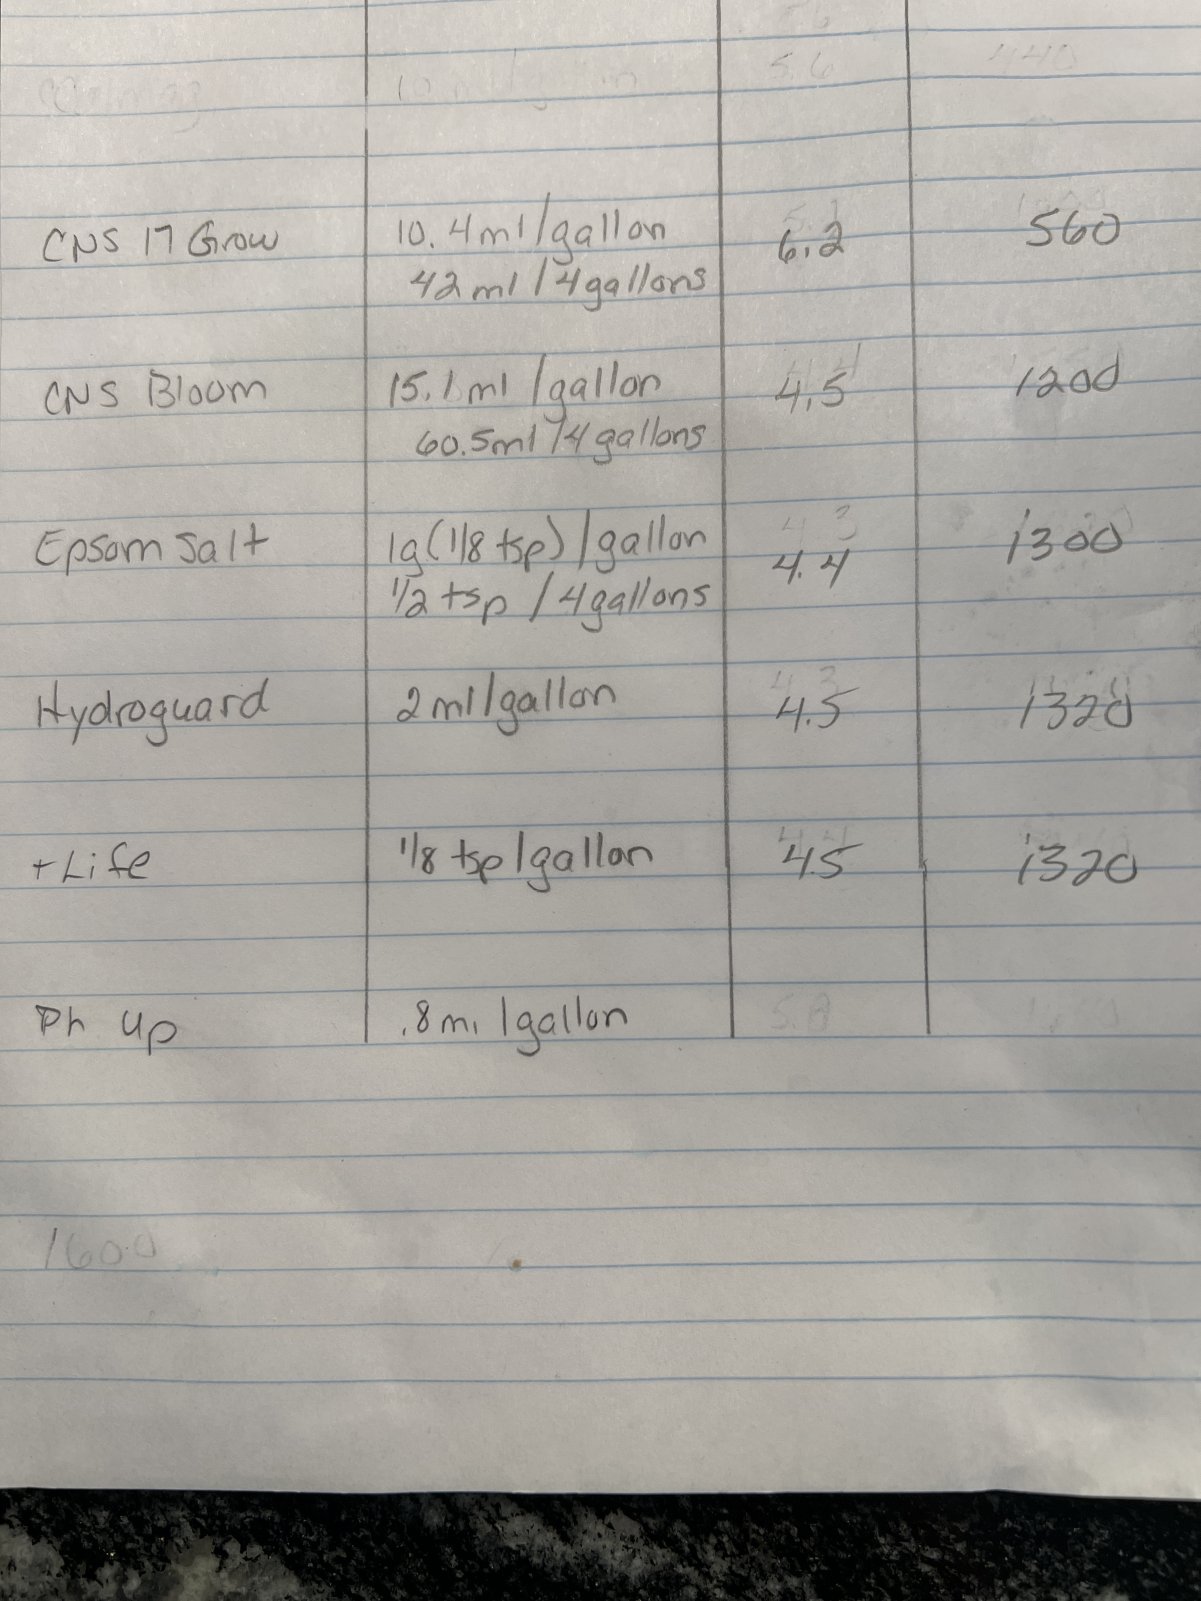 5.6 440
CNS 17 Grow 10.4ml/gallon 6.2 560
42ml/4gallons
CNS Bloom 15.1ml/gallon 4.5 1200
60.5ml/4gallons
Epsom Salt 1g(1/8 tsp)/gallon 4.4 1300
1/2 tsp/4gallons
Hydroguard 2ml/gallon 4.5 1320
+Life 1/8 tsp/gallon 4.5 1320
Ph Up .8ml/gallon
1600